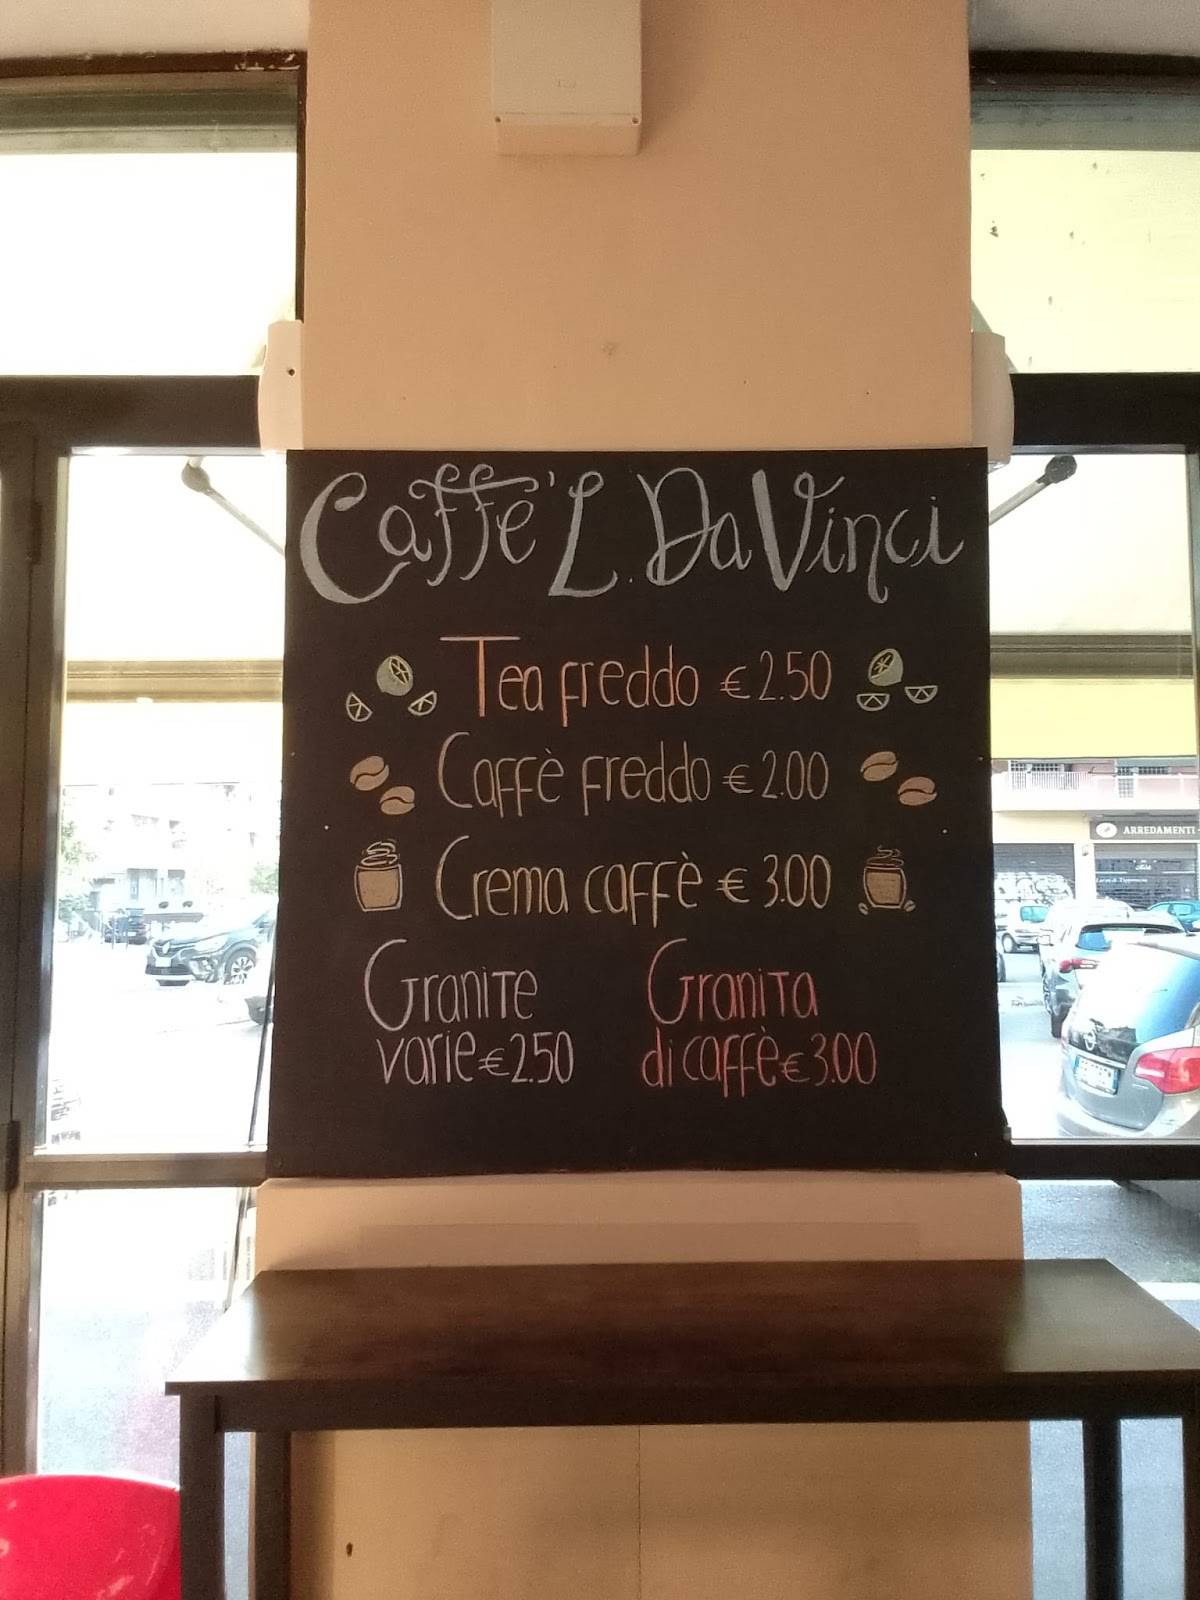 Caffe' L. Da Vinci
Tea freddo € 2.50
Caffè freddo € 2.00
Crema caffè € 3.00
Granite
varie € 2.50
Granita
di caffè € 3.00
ARREDAMENTI